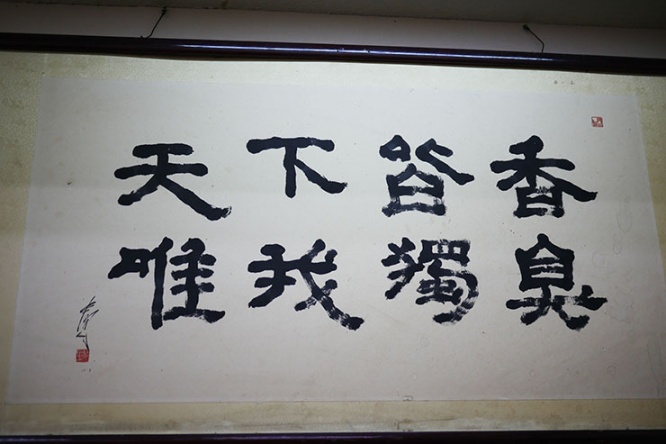 天下皆香
唯我獨臭